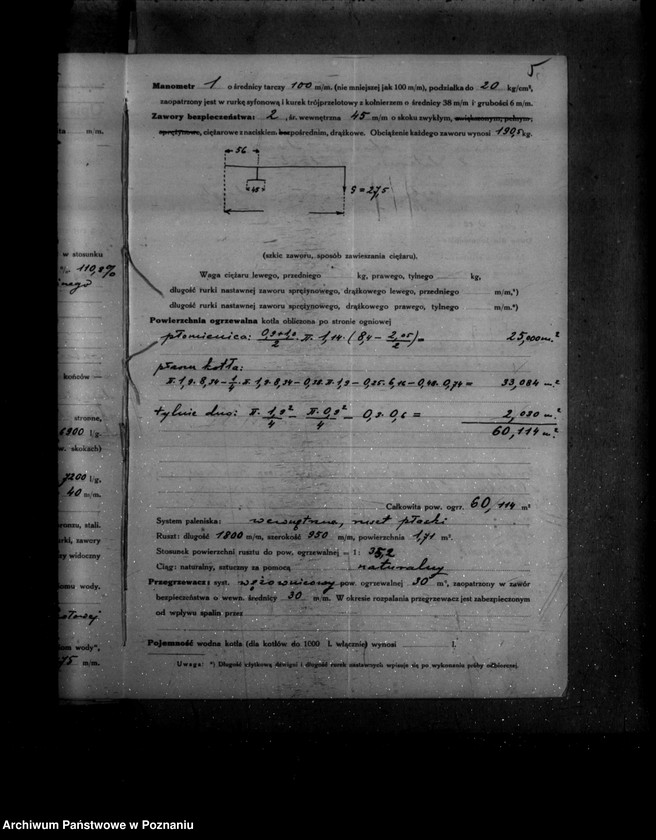 5.
Manometr 1 o średnicy tarczy 100 m/m. (nie mniejszej jak 100 m/m), podziałka do 20 kg/cm²,
zaopatrzony jest w rurkę syfonową i kurek trójprzelotowy z kołnierzem o średnicy 38 m/m i grubości 6 m/m.
Zawory bezpieczeństwa: 2, śr. wewnętrzna 45 m/m o skoku zwykłym, zwiększonym, pełnym,
sprężynowe, ciężarowe z naciskiem bezpośrednim, drążkowe. Obciążenie każdego zaworu wynosi 190,5 kg.
56
45
S = 27,5
(szkic zaworu, sposób zawieszania ciężaru).
Waga ciężaru lewego, przedniego kg, prawego, tylnego kg,
długość rurki nastawnej zaworu sprężynowego, drążkowego lewego, przedniego m/m,*)
długość rurki nastawnej zaworu sprężynowego, drążkowego prawego, tylnego m/m.*)
Powierzchnia ogrzewalna kotła obliczona po stronie ogniowej
płomienica: 25,000 m²
płaszcz kotła:
33,084 m²
tylnie dno: π · 1,9² / 4 − π · 0,9² / 4 − 0,3 · 0,6 = 2,030 m²
60,114 m²
Całkowita pow. ogrz. 60,114 m²
System paleniska: wewnętrzna, ruszt płaski
Ruszt: długość 1800 m/m, szerokość 950 m/m, powierzchnia 1,71 m².
Stosunek powierzchni rusztu do pow. ogrzewalnej = 1 : 35,2
Ciąg: naturalny, sztuczny za pomocą naturalny
Przegrzewacz: syst. wężownicowy pow. ogrzewalnej 30 m², zaopatrzony w zawór
bezpieczeństwa o wewn. średnicy 30 m/m. W okresie rozpalania przegrzewacz jest zabezpieczonym
od wpływu spalin przez
Pojemność wodna kotła (dla kotłów do 1000 l. włącznie) wynosi l.
Uwaga: *) Długość użytkową dźwigni i długość rurek nastawnych wpisuje się po wykonaniu próby odbiorczej.
m/m.
w stosunku
110,8%
końców —
stronne,
6900 l/g.
w. skokach)
7200 l/g,
40 m/m.
bronzu, stali.
zawory
widoczny
wody.
wody",
75 m/m.
Archiwum Państwowe w Poznaniu